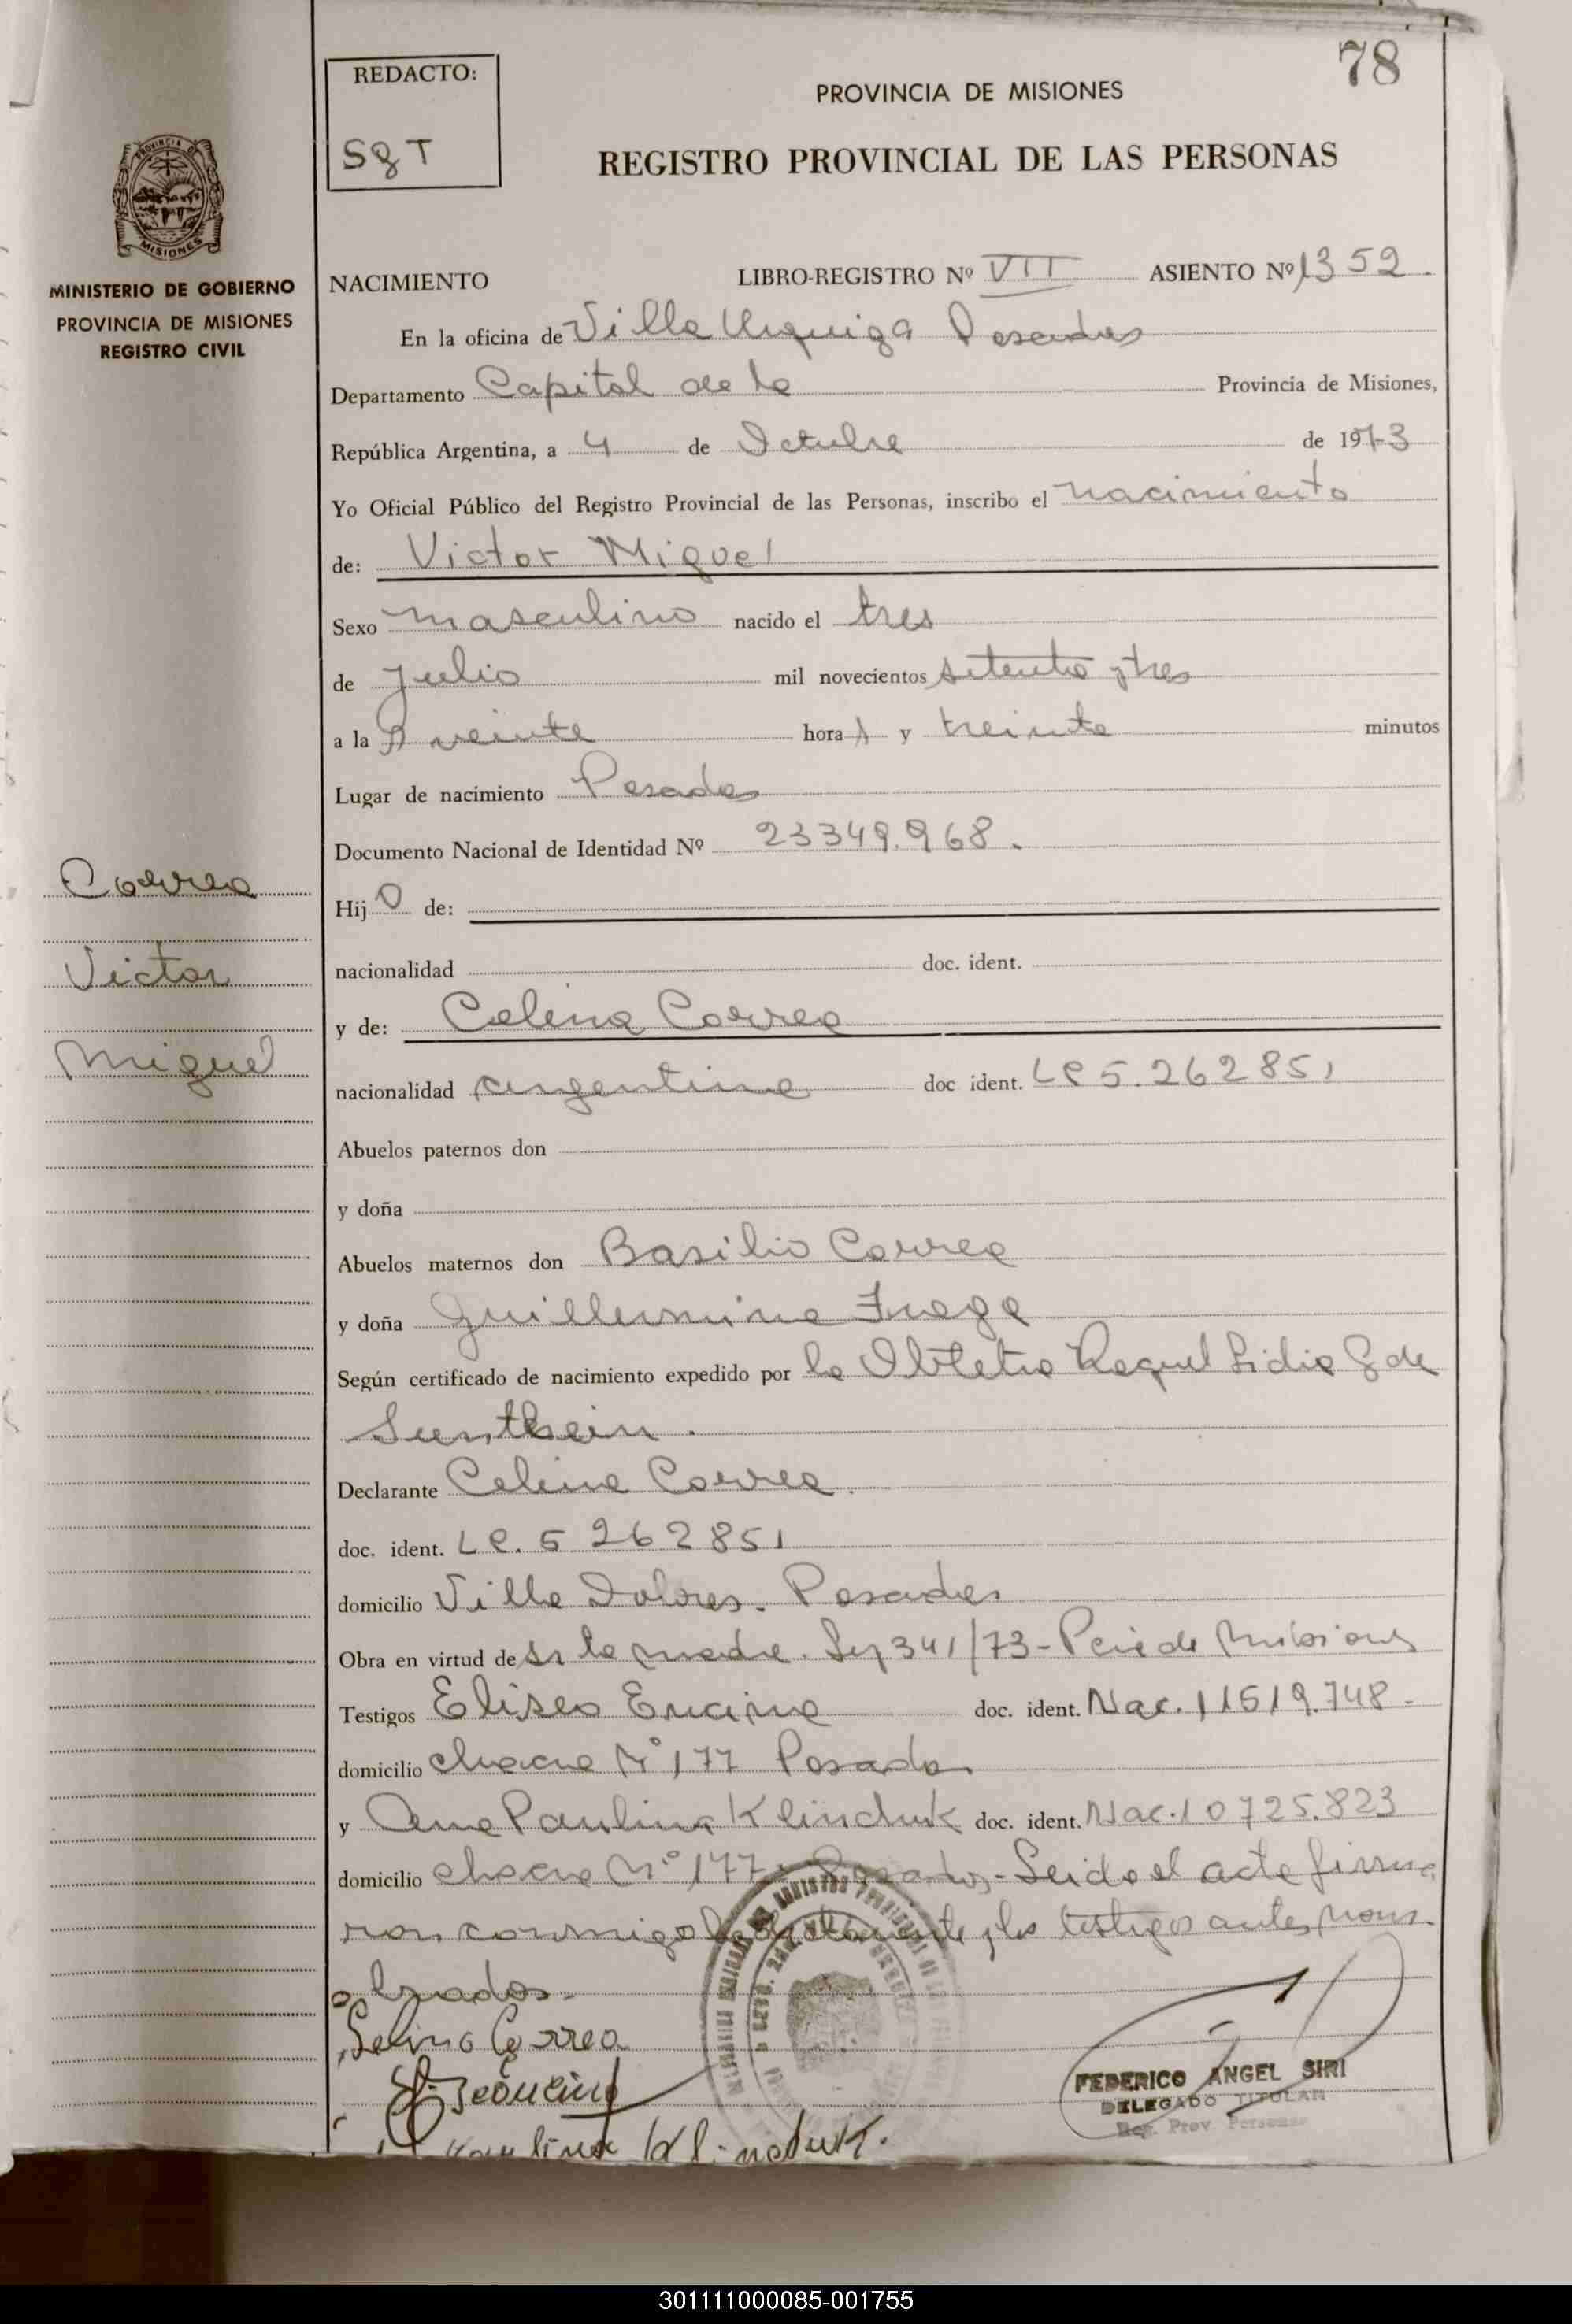 78
REDACTO:
SgT
PROVINCIA DE MISIONES
REGISTRO PROVINCIAL DE LAS PERSONAS
MISIONES
MINISTERIO DE GOBIERNO
PROVINCIA DE MISIONES
REGISTRO CIVIL
NACIMIENTO LIBRO-REGISTRO Nº VII ASIENTO Nº 1352.
En la oficina de Villa Urquiza Posadas
Departamento Capital de la Provincia de Misiones,
República Argentina, a 4 de Octubre de 1973
Yo Oficial Público del Registro Provincial de las Personas, inscribo el nacimiento
de: Victor Miguel
Sexo masculino nacido el tres
de Julio mil novecientos setenta y tres
a la s veinte hora s y treinta minutos
Lugar de nacimiento Posadas
Documento Nacional de Identidad Nº 23349.968.
Correa
Victor
Miguel
Hij o de:
nacionalidad doc. ident.
y de: Celina Correa
nacionalidad argentina doc ident. LC 5.262851
Abuelos paternos don
y doña
Abuelos maternos don Basilio Correa
y doña Guillermina Fraga
Según certificado de nacimiento expedido por la Obstetra Raquel Lidia G de
Sunthein.
Declarante Celina Correa.
doc. ident. LC. 5 262851
domicilio Villa Dolores. Posadas
Obra en virtud de ser la madre. Ley 341/73- Pcia de Misiones
Testigos Eliseo Encina doc. ident. Nac. 11519.748-
domicilio chacra Nº 177 Posadas
y Ana Paulina Klinduk doc. ident. Nac. 10725.823
domicilio chacra Nº 177- Posadas,- Leido el acta firma
ron conmigo la declarante y los testigos antes nom-
brados.
Celina Correa
Eliseo Encina
Paulina Klinduk.
FEDERICO ANGEL SIRI
DELEGADO TITULAR
Reg. Prov. Personas
301111000085-001755